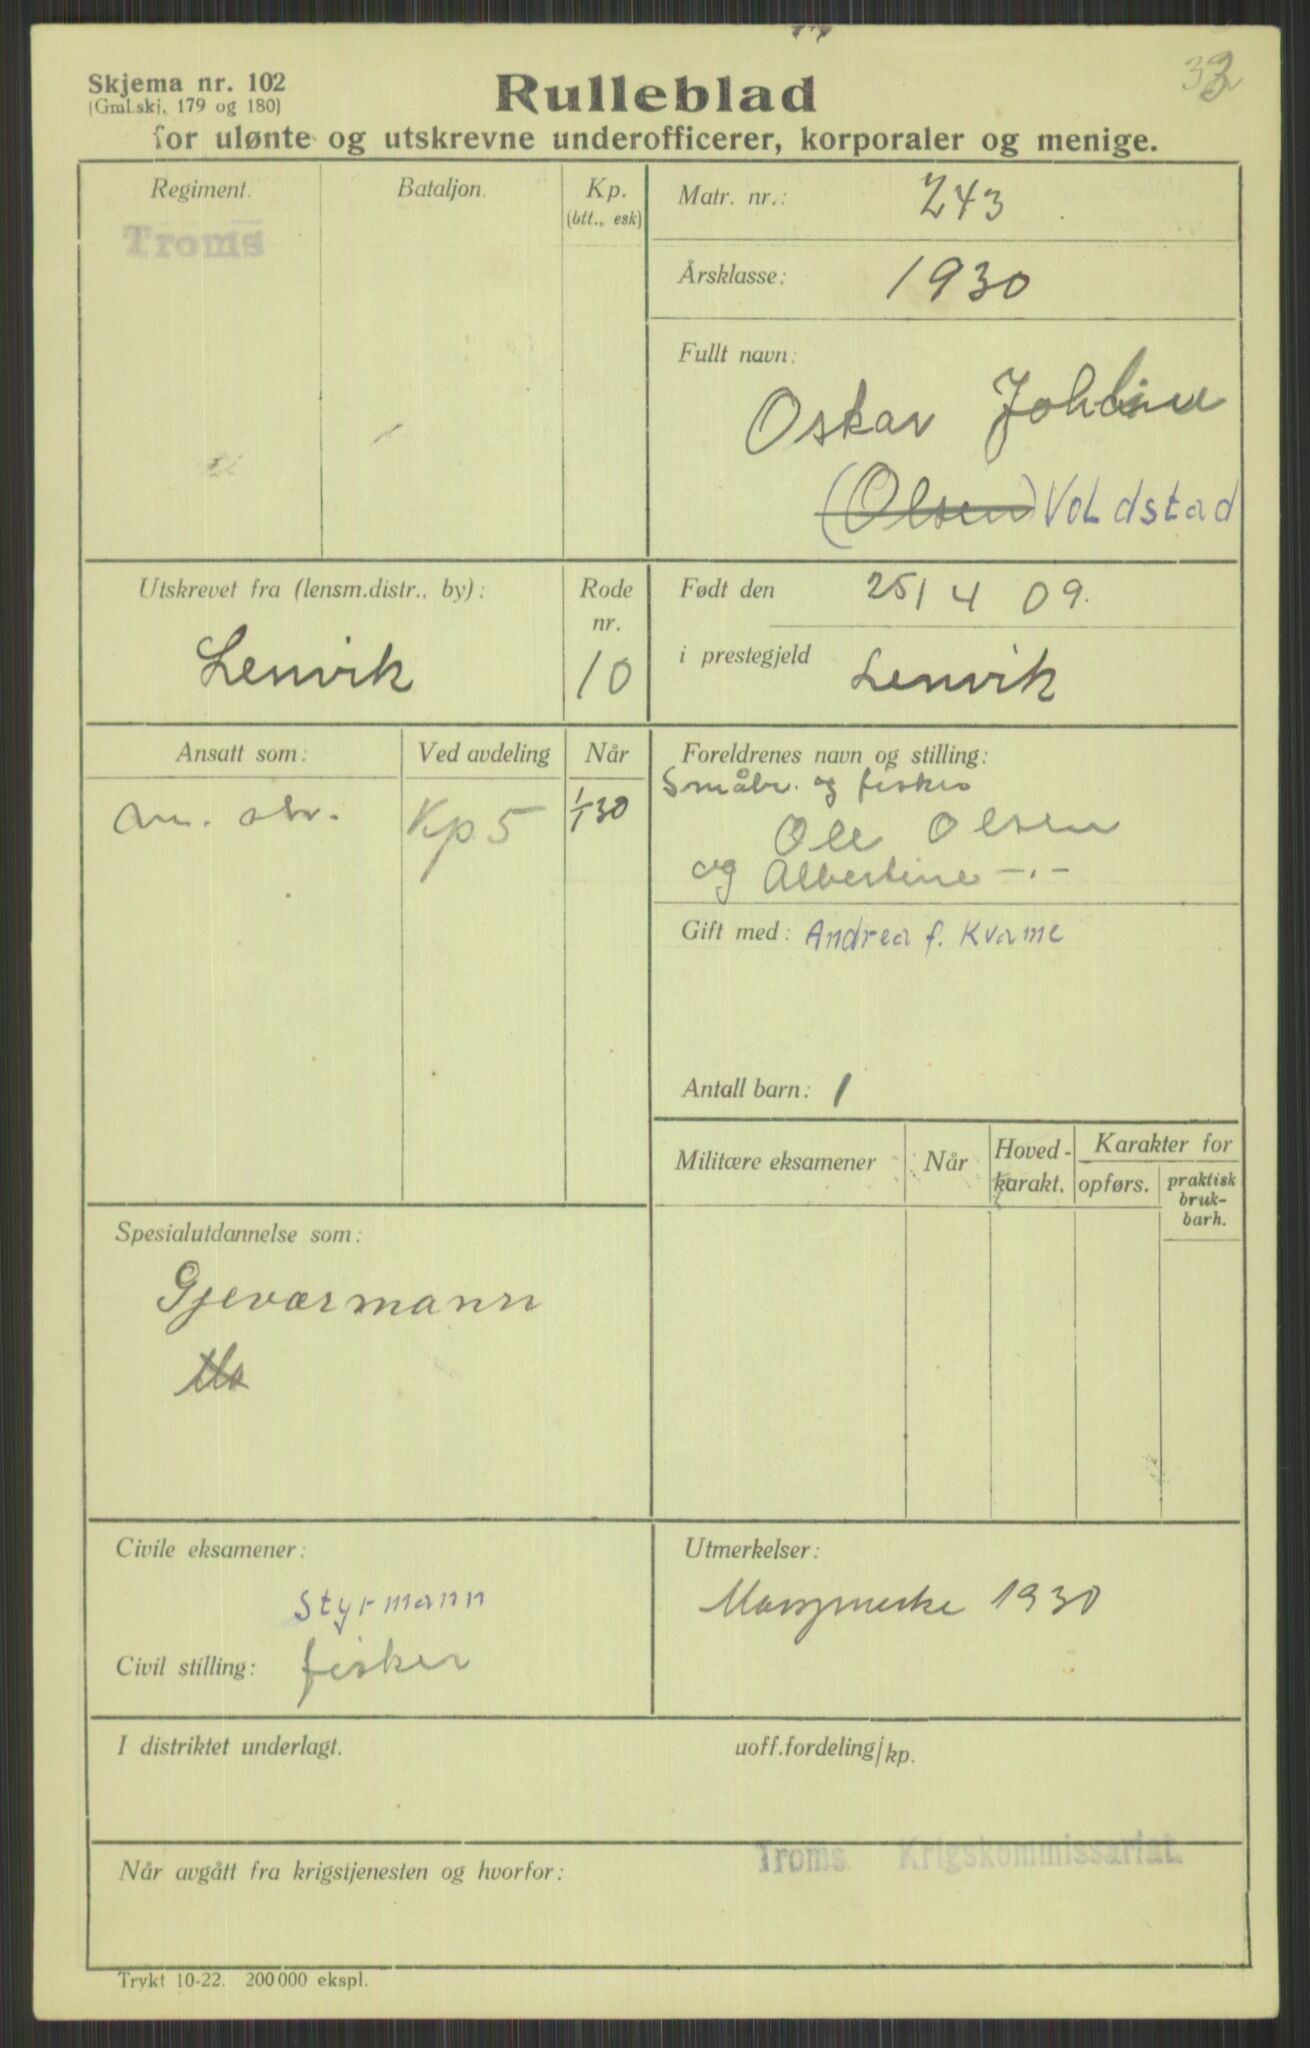 33
Skjema nr. 102
(Gml.skj. 179 og 180)
Rulleblad
for ulønte og utskrevne underofficerer, korporaler og menige.
Regiment.
Bataljon.
Kp.
(btt., esk)
Troms
Matr. nr.: 243
Årsklasse: 1930
Fullt navn:
Oskar
(Olsen) Voldstad
Utskrevet fra (lensm.distr., by):
Lenvik
Rode
nr.
10
Født den 25/4 09.
i prestegjeld Lenvik
Ansatt som:
Ved avdeling
Når
Kp 5
1/1 30
Foreldrenes navn og stilling:
Småbr. og fisker
Ole Olsen
og Albertine -"-
Gift med: Andrea f. Kvame
Antall barn: 1
Militære eksamener
Når
Hoved-
karakt.
Karakter for
opførs.
praktisk
bruk-
barh.
Spesialutdannelse som:
Gjeværmann
Civile eksamener:
Styrmann
Civil stilling: fisker
Utmerkelser:
Marsjmerke 1930
I distriktet underlagt.
uoff.fordeling/kp.
Når avgått fra krigstjenesten og hvorfor:
Troms Krigskommissariat.
Trykt 10-22. 200 000 ekspl.